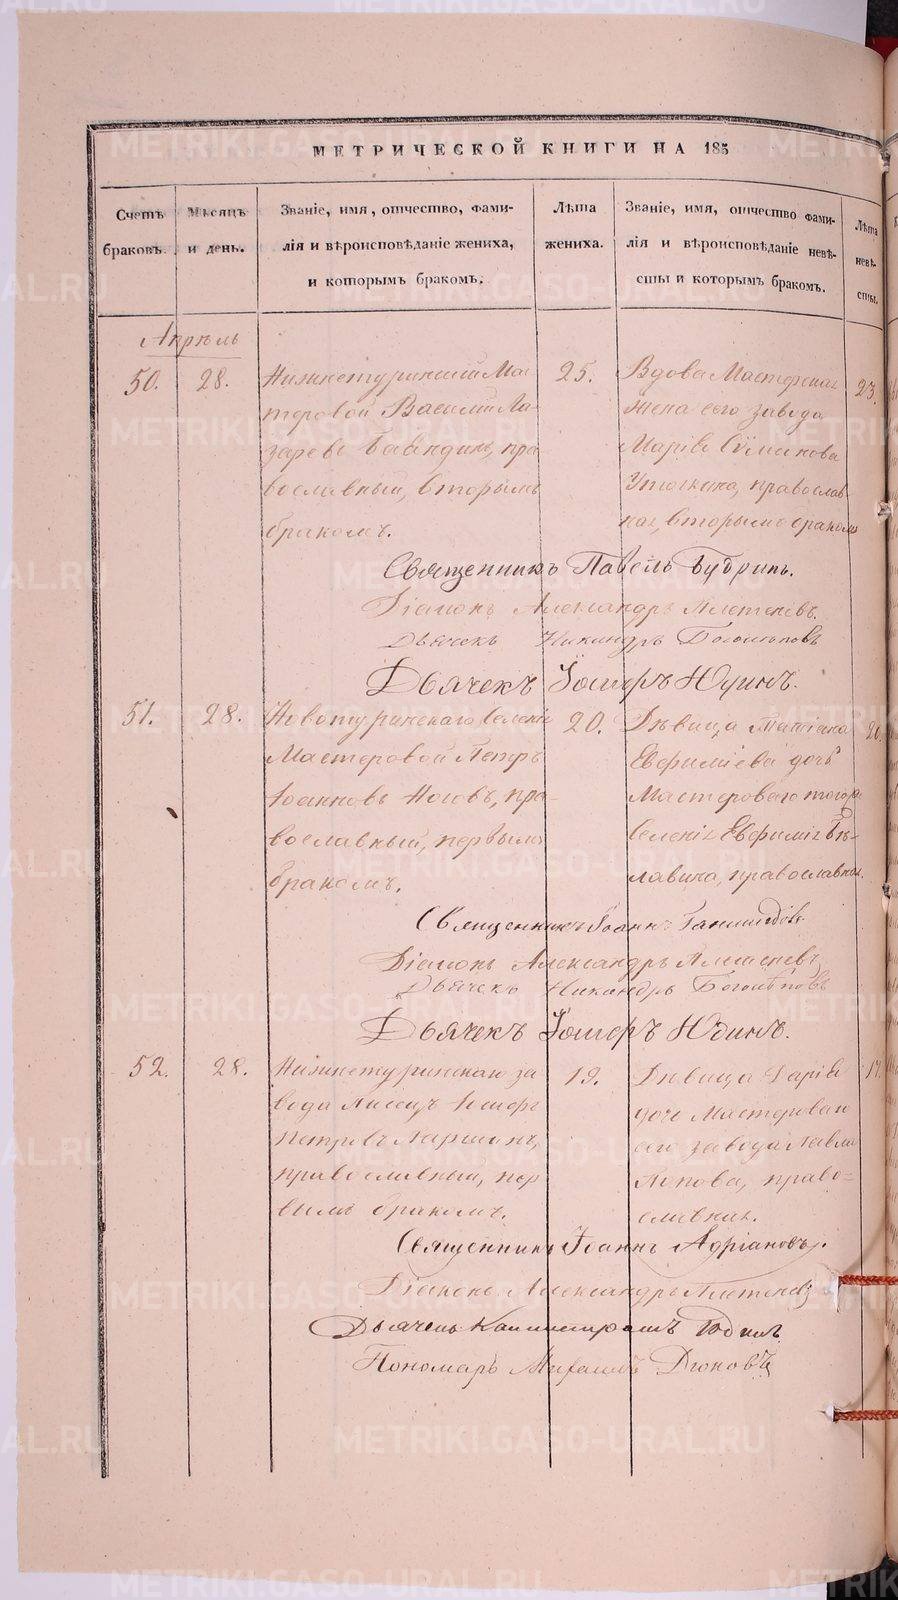 МЕТРИЧЕСКОЙ КНИГИ НА 185
Счетъ браковъ.
Мѣсяцъ и день.
Званіе, имя, отчество, фами-
лія и вѣроисповѣданіе жениха,
и которымъ бракомъ.
Лѣта жениха.
Званіе, имя, отчество фами-
лія и вѣроисповѣданіе невѣ-
сты и которымъ бракомъ.
Лѣта невѣ-
сты.
Апрѣль
50. 28.
Нижнетуринскій Мас-
теровой Василій Ла-
заревъ
православный, вторымъ
бракомъ.
25.
Вдова Мастерская
жена сего завода
Марія
православ-
ная, вторымъ бракомъ
23.
Священникъ Павелъ Бубринъ.
Діаконъ Александръ
Дьячекъ Никандръ Боголѣповъ
Дьячекъ Іосифъ Юдинъ.
51. 28.
Новотуринскаго селенія
Мастеровой Петръ
Іоанновъ Ноговъ, пра-
вославный, первымъ
бракомъ.
20.
Дѣвица Татіана
Евфиміева дочь
Мастероваго того
селенія Евфимія Бѣ-
лавина, православная.
Священникъ Іоаннъ
Діаконъ Александръ
Дьячекъ Никандръ Боголѣповъ
Дьячекъ Іосифъ Юдинъ.
52. 28.
Нижнетуринскаго за
вода Писецъ Іосифъ
Петровъ
православный, пер
вымъ бракомъ.
19.
Дѣвица Дарія
дочь Мастероваго
сего завода Павла
Попова, право-
славная.
17.
Священникъ Іоаннъ Адріановъ.
Діаконъ Александръ
Дьячекъ Каллистратъ Юдинъ
Пономарь Михаилъ Дюковъ
METRIKI.GASO-URAL.RU